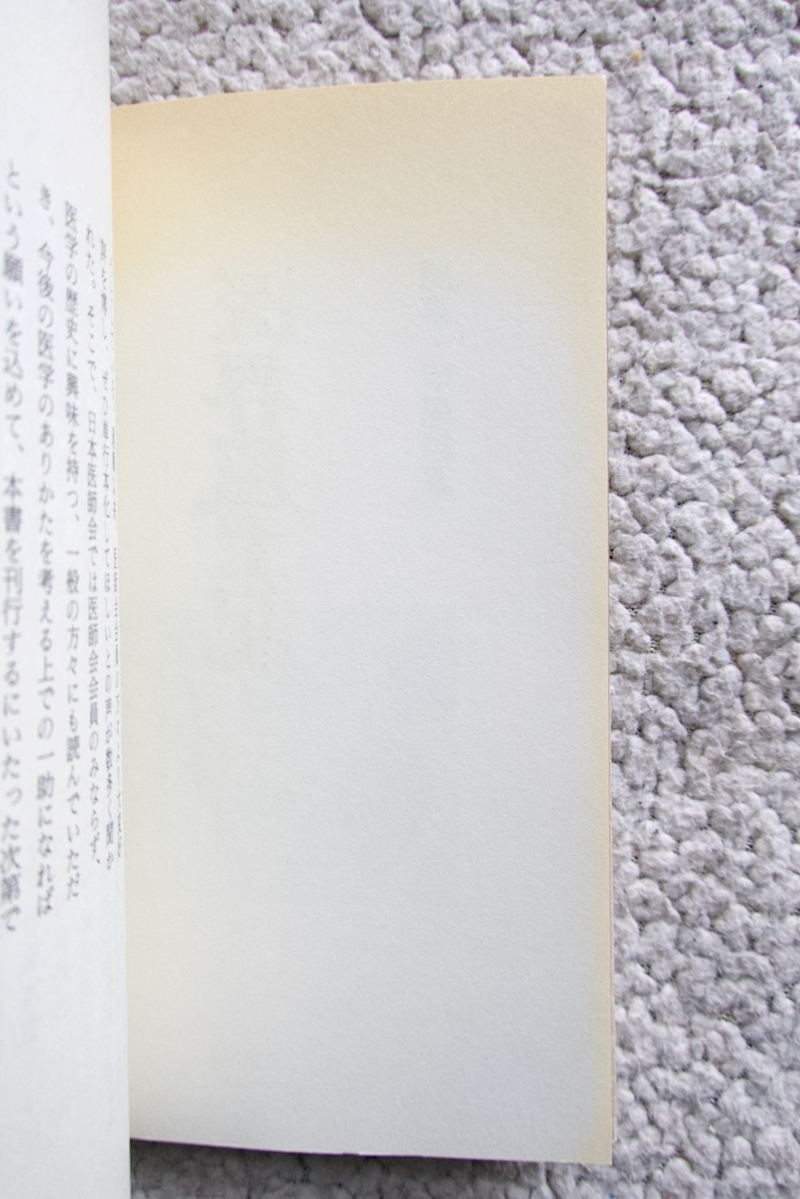 単行本化してほしいとの声が数多く聞か
れた。そこで、日本医師会では医師会会員のみならず、
医学の歴史に興味を持つ、一般の方々にも読んでいただ
き、今後の医学のありかたを考える上での一助になれば
という願いを込めて、本書を刊行するにいたった次第で